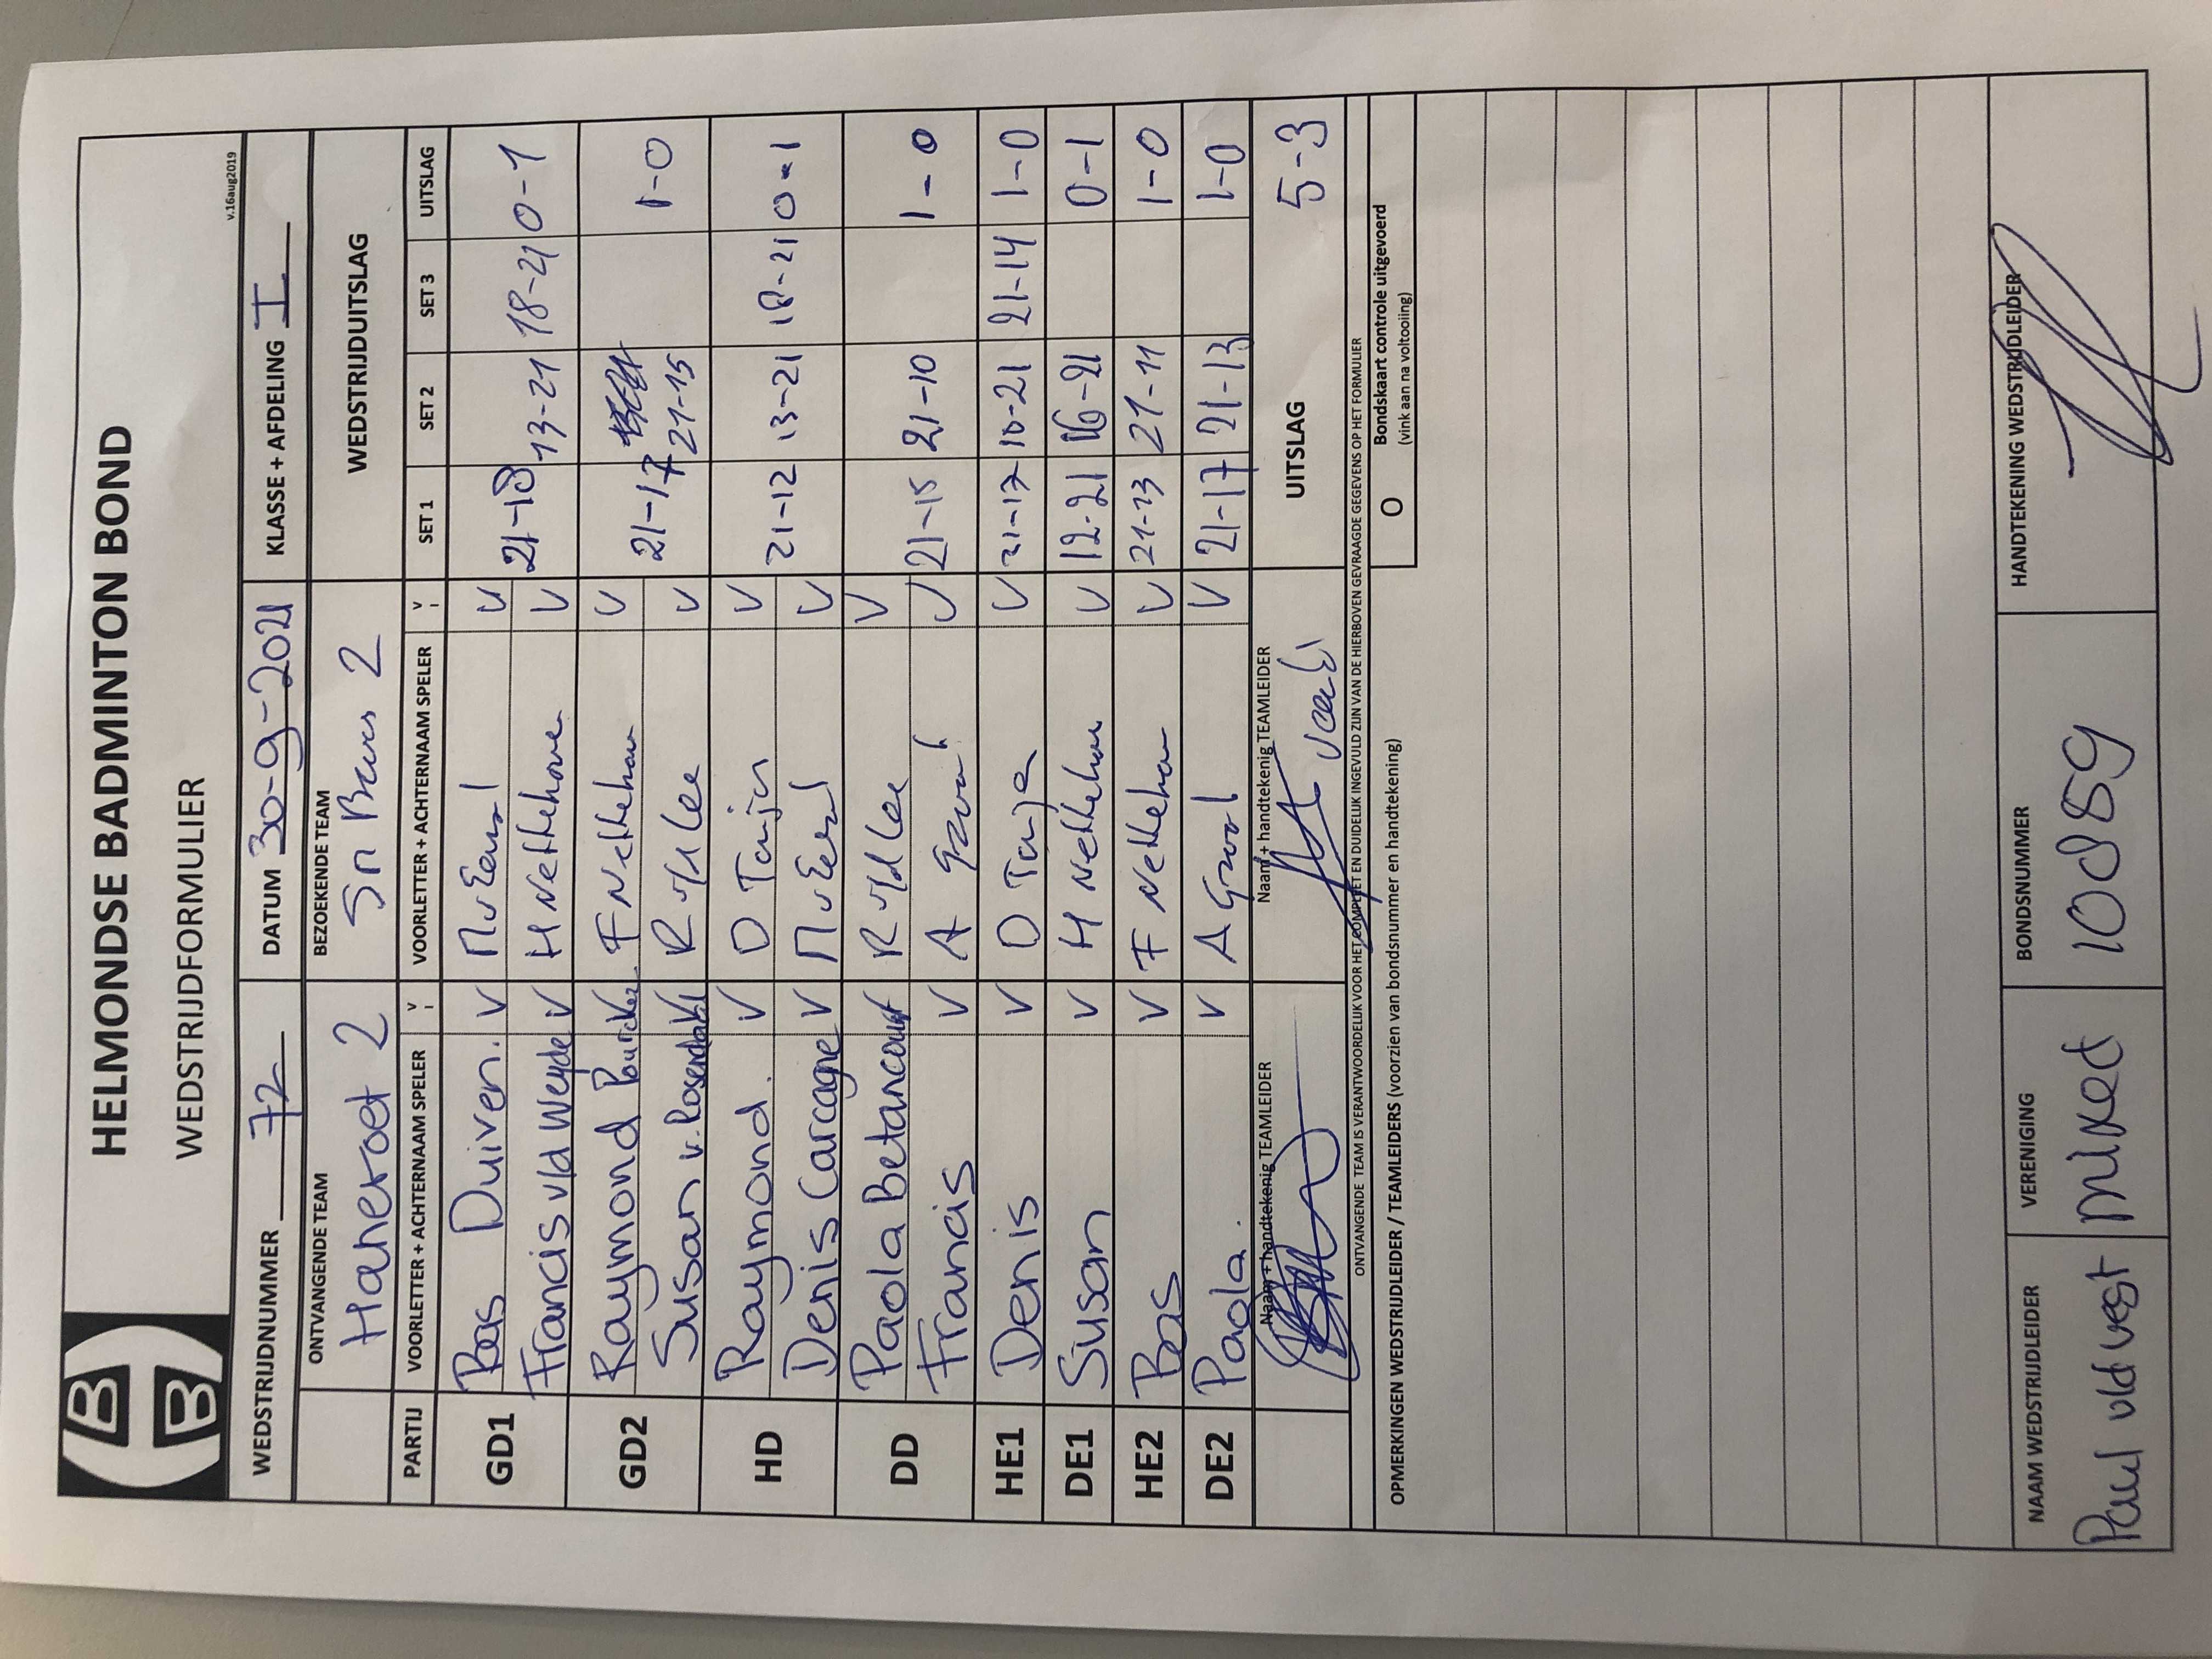 HELMONDSE BADMINTON BOND
WEDSTRIJDFORMULIER
v.16aug2019
WEDSTRIJDNUMMER 72 DATUM 30-9-2021 KLASSE + AFDELING I
ONTVANGENDE TEAM BEZOEKENDE TEAM WEDSTRIJDUITSLAG
Haneroet 2 2
PARTIJ VOORLETTER + ACHTERNAAM SPELER V VOORLETTER + ACHTERNAAM SPELER V SET 1 SET 2 SET 3 UITSLAG
GD1 Bas Duiven. V V 21-18 13-21 18-21 0-1
Francis v/d Weyde V H V
GD2 Raymond F V 21-17 21-15 1-0
Susan v. Rosendahl R v/d Lee V
HD Raymond. V D V 21-12 13-21 18-21 0-1
Denis Carcagne V V
DD Paola Betancourt R v/d Lee V 21-15 21-10 1-0
Francis V A V
HE1 Denis V D V 21-17 10-21 21-14 1-0
DE1 Susan V H V 12-21 16-21 0-1
HE2 Bas V F V 21-13 21-11 1-0
DE2 Paola. V A V 21-17 21-13 1-0
Naam + handtekenig TEAMLEIDER Naam + handtekenig TEAMLEIDER UITSLAG 5-3
ONTVANGENDE TEAM IS VERANTWOORDELIJK VOOR HET COMPLEET EN DUIDELIJK INGEVULD ZIJN VAN DE HIERBOVEN GEVRAAGDE GEGEVENS OP HET FORMULIER
OPMERKINGEN WEDSTRIJDLEIDER / TEAMLEIDERS (voorzien van bondsnummer en handtekening) O Bondskaart controle uitgevoerd
(vink aan na voltooiing)
NAAM WEDSTRIJDLEIDER VERENIGING BONDSNUMMER HANDTEKENING WEDSTRIJDLEIDER
Paul v/d Vest mixed 10859